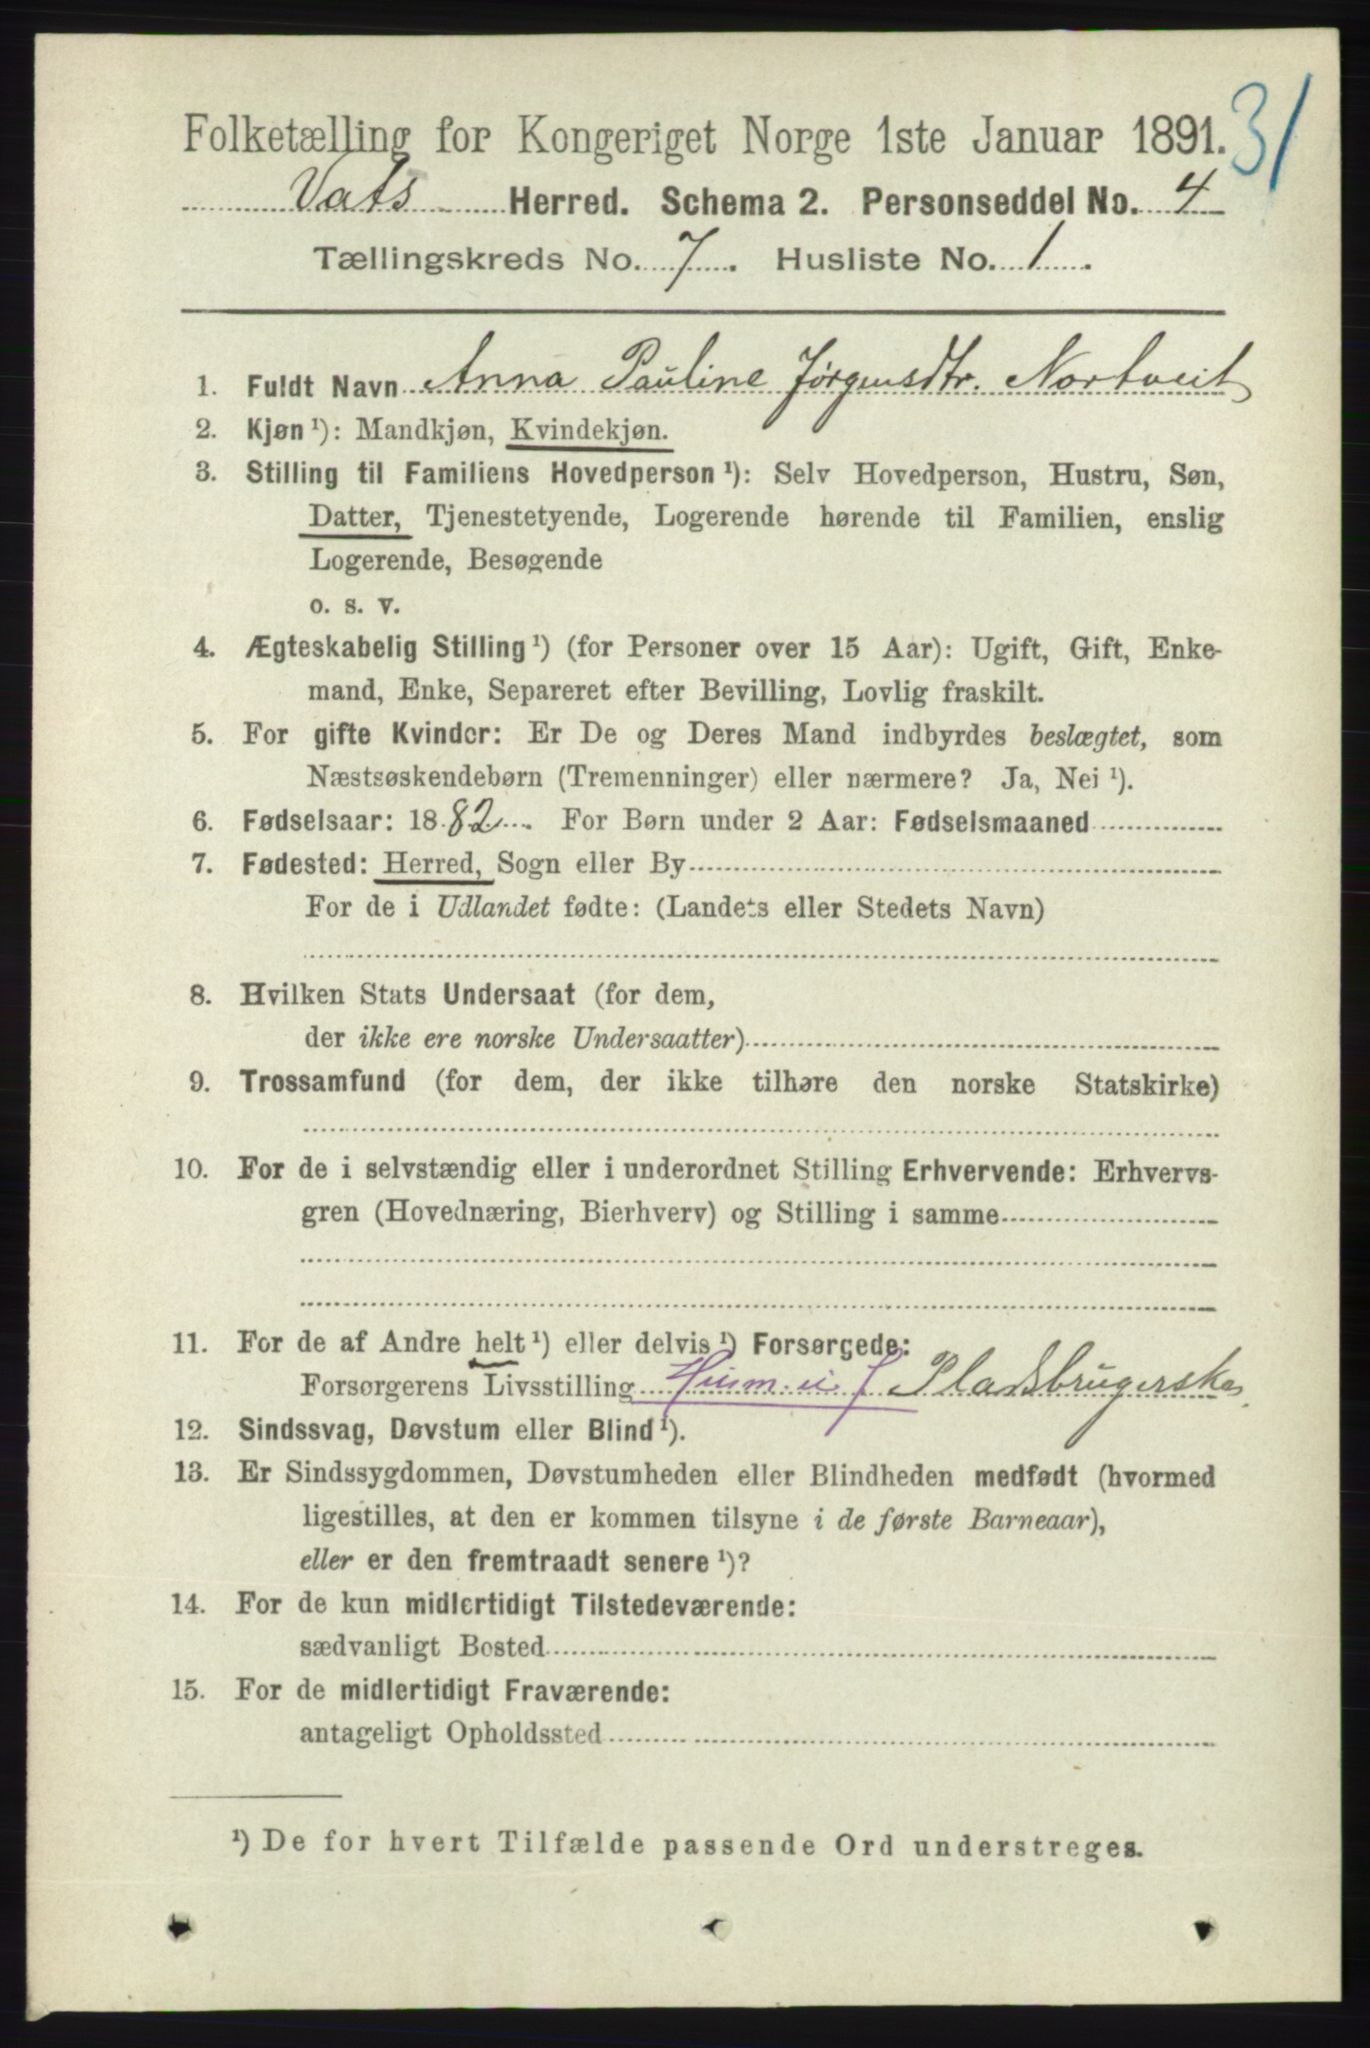 31
Folketælling for Kongeriget Norge 1ste Januar 1891.
Vats Herred. Schema 2. Personseddel No. 4
Tællingskreds No. 7. Husliste No. 1.
1. Fuldt Navn Anna Pauline Jørgensdtr. Nortveit
2. Kjøn ¹): Mandkjøn, Kvindekjøn.
3. Stilling til Familiens Hovedperson ¹): Selv Hovedperson, Hustru, Søn,
Datter, Tjenestetyende, Logerende hørende til Familien, enslig
Logerende, Besøgende
o. s. v.
4. Ægteskabelig Stilling ¹) (for Personer over 15 Aar): Ugift, Gift, Enke-
mand, Enke, Separeret efter Bevilling, Lovlig fraskilt.
5. For gifte Kvinder: Er De og Deres Mand indbyrdes beslægtet, som
Næstsøskendebørn (Tremenninger) eller nærmere? Ja, Nei ¹).
6. Fødselsaar: 1882. For Børn under 2 Aar: Fødselsmaaned
7. Fødested: Herred, Sogn eller By
For de i Udlandet fødte: (Landets eller Stedets Navn)
8. Hvilken Stats Undersaat (for dem,
der ikke ere norske Undersaatter)
9. Trossamfund (for dem, der ikke tilhøre den norske Statskirke)
10. For de i selvstændig eller i underordnet Stilling Erhvervende: Erhvervs-
gren (Hovednæring, Bierhverv) og Stilling i samme
11. For de af Andre helt ¹) eller delvis ¹) Forsørgede:
Forsørgerens Livsstilling Husm. u. J Pladsbrugerske
12. Sindssvag, Døvstum eller Blind ¹).
13. Er Sindssygdommen, Døvstumheden eller Blindheden medfødt (hvormed
ligestilles, at den er kommen tilsyne i de første Barneaar),
eller er den fremtraadt senere ¹)?
14. For de kun midlertidigt Tilstedeværende:
sædvanligt Bosted
15. For de midlertidigt Fraværende:
antageligt Opholdssted
¹) De for hvert Tilfælde passende Ord understreges.